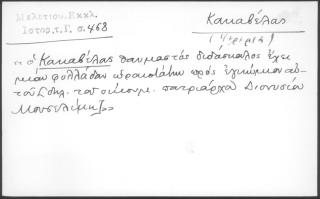 Μελετίου. Εκκλ.
Ιστορ. τ. Γ. σ. 468
Κακαβέλας
«ὁ Κακαβέλας θαυμαστός διδάσκαλος ἔχει
μίαν φυλλάδαν ὡραιοτάτην πρός ἐγκώμιον αὐ-
τοῦ [δηλ. τοῦ οἰκουμ. πατριάρχου Διονυσίου
Μουσελίμη]»